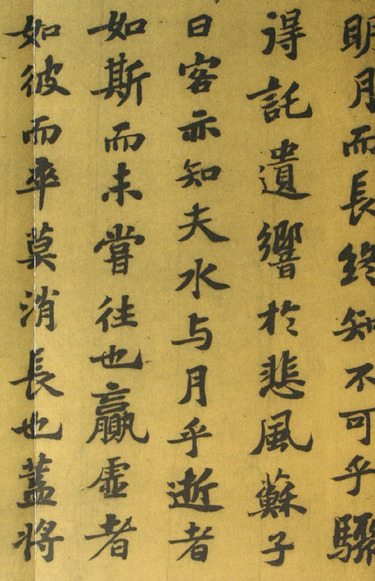 明月而長終知不可乎驟
得託遺響於悲風蘇子
曰客亦知夫水与月乎逝者
如斯而未嘗往也贏虛者
如彼而卒莫消長也蓋將